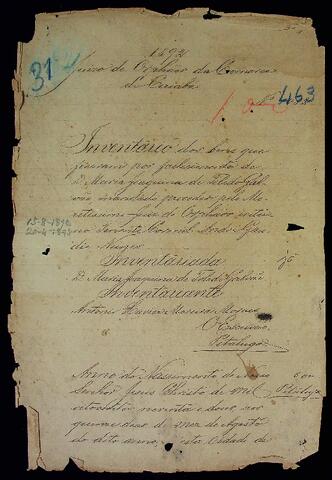 1892
Juizo de Orphãos da Comarca
de Cuiabá
31
463
Inventário dos bens que
ficaram por fallecimento de
D. Maria Joaquina de Toledo Gal
vão mandado proceder pelo Me
ritissimo Juiz de Orphãos
Tenente Coronel André
Nunes
15-8-1892
20-4-1893
Inventariada
D. Maria Joaquina de Toledo Galvão
Inventariante
Antonio Xavier Moreira
O Escrivão
Petaluga
Anno do Nascimento de Nosso
Senhor Jesus Christo de mil
oitocentos noventa e dous, aos
quinze dias do mez de Agosto
do dito anno, nesta Cidade de